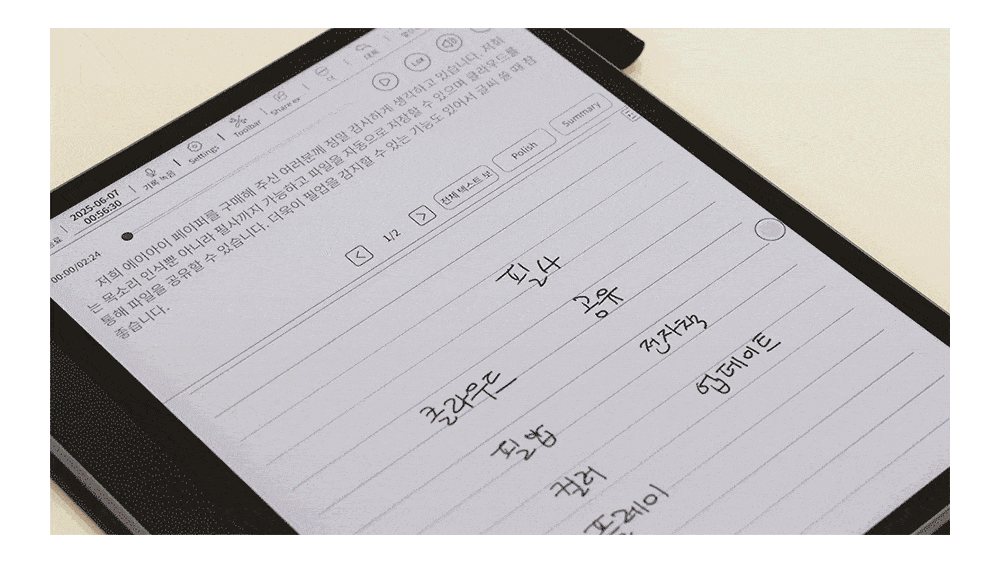 2025-06-07
00:56:30
기록 녹음
Settings
Toolbar
Share
00:00/02:24
1.0X
저희 에이아이 페이퍼를 구매해 주신 여러분께 정말 감사하게 생각하고 있습니다. 저희
는 목소리 인식뿐 아니라 필사까지 가능하고 파일을 자동으로 저장할 수 있으며 클라우드를
통해 파일을 공유할 수 있습니다. 더욱이 필압을 감지할 수 있는 기능도 있어서 글씨 쓸 때 참
좋습니다.
< 1/2 > 전체 텍스트 보 Polish Summary
필사
공유
전자책
업데이트
클라우드
필압
컬러
플레이